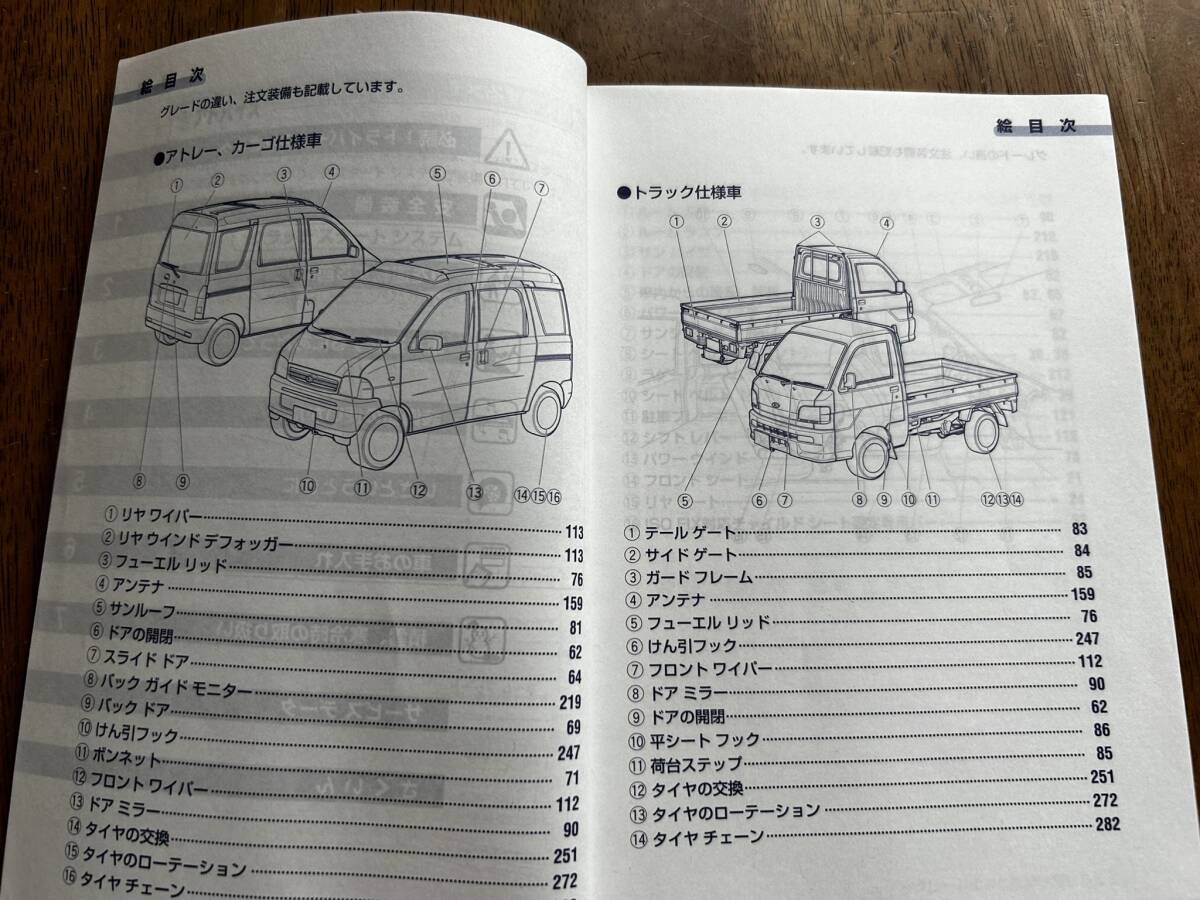 絵 目 次
グレードの違い、注文装備も記載しています。
●アトレー、カーゴ仕様車
① ② ③ ④ ⑤ ⑥ ⑦
⑧ ⑨ ⑩ ⑪ ⑫ ⑬ ⑭⑮⑯
①リヤ ワイパー 113
②リヤ ウインド デフォッガー 113
③フューエル リッド 76
④アンテナ 159
⑤サンルーフ 81
⑥ドアの開閉 62
⑦スライド ドア 64
⑧バック ガイド モニター 219
⑨バック ドア 69
⑩けん引フック 247
⑪ボンネット 71
⑫フロント ワイパー 112
⑬ドア ミラー 90
⑭タイヤの交換 251
⑮タイヤのローテーション 272
⑯タイヤ チェーン
絵 目 次
●トラック仕様車
① ② ③ ④
⑤ ⑥ ⑦ ⑧ ⑨ ⑩ ⑪ ⑫⑬⑭
①テール ゲート 83
②サイド ゲート 84
③ガード フレーム 85
④アンテナ 159
⑤フューエル リッド 76
⑥けん引フック 247
⑦フロント ワイパー 112
⑧ドア ミラー 90
⑨ドアの開閉 62
⑩平シート フック 86
⑪荷台ステップ 85
⑫タイヤの交換 251
⑬タイヤのローテーション 272
⑭タイヤ チェーン 282